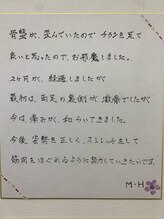 骨盤が、歪んでいたので チラシを見て
良いと思ったので、お邪魔しました。
2ヶ月が、経過しましたが
最初は、両足の裏側が、激痛でしたが
今は、痛みが、和らいできました。
今後、姿勢を正しく、ストレッチをして
筋肉をほぐれるように努力していきたいです。
M・H